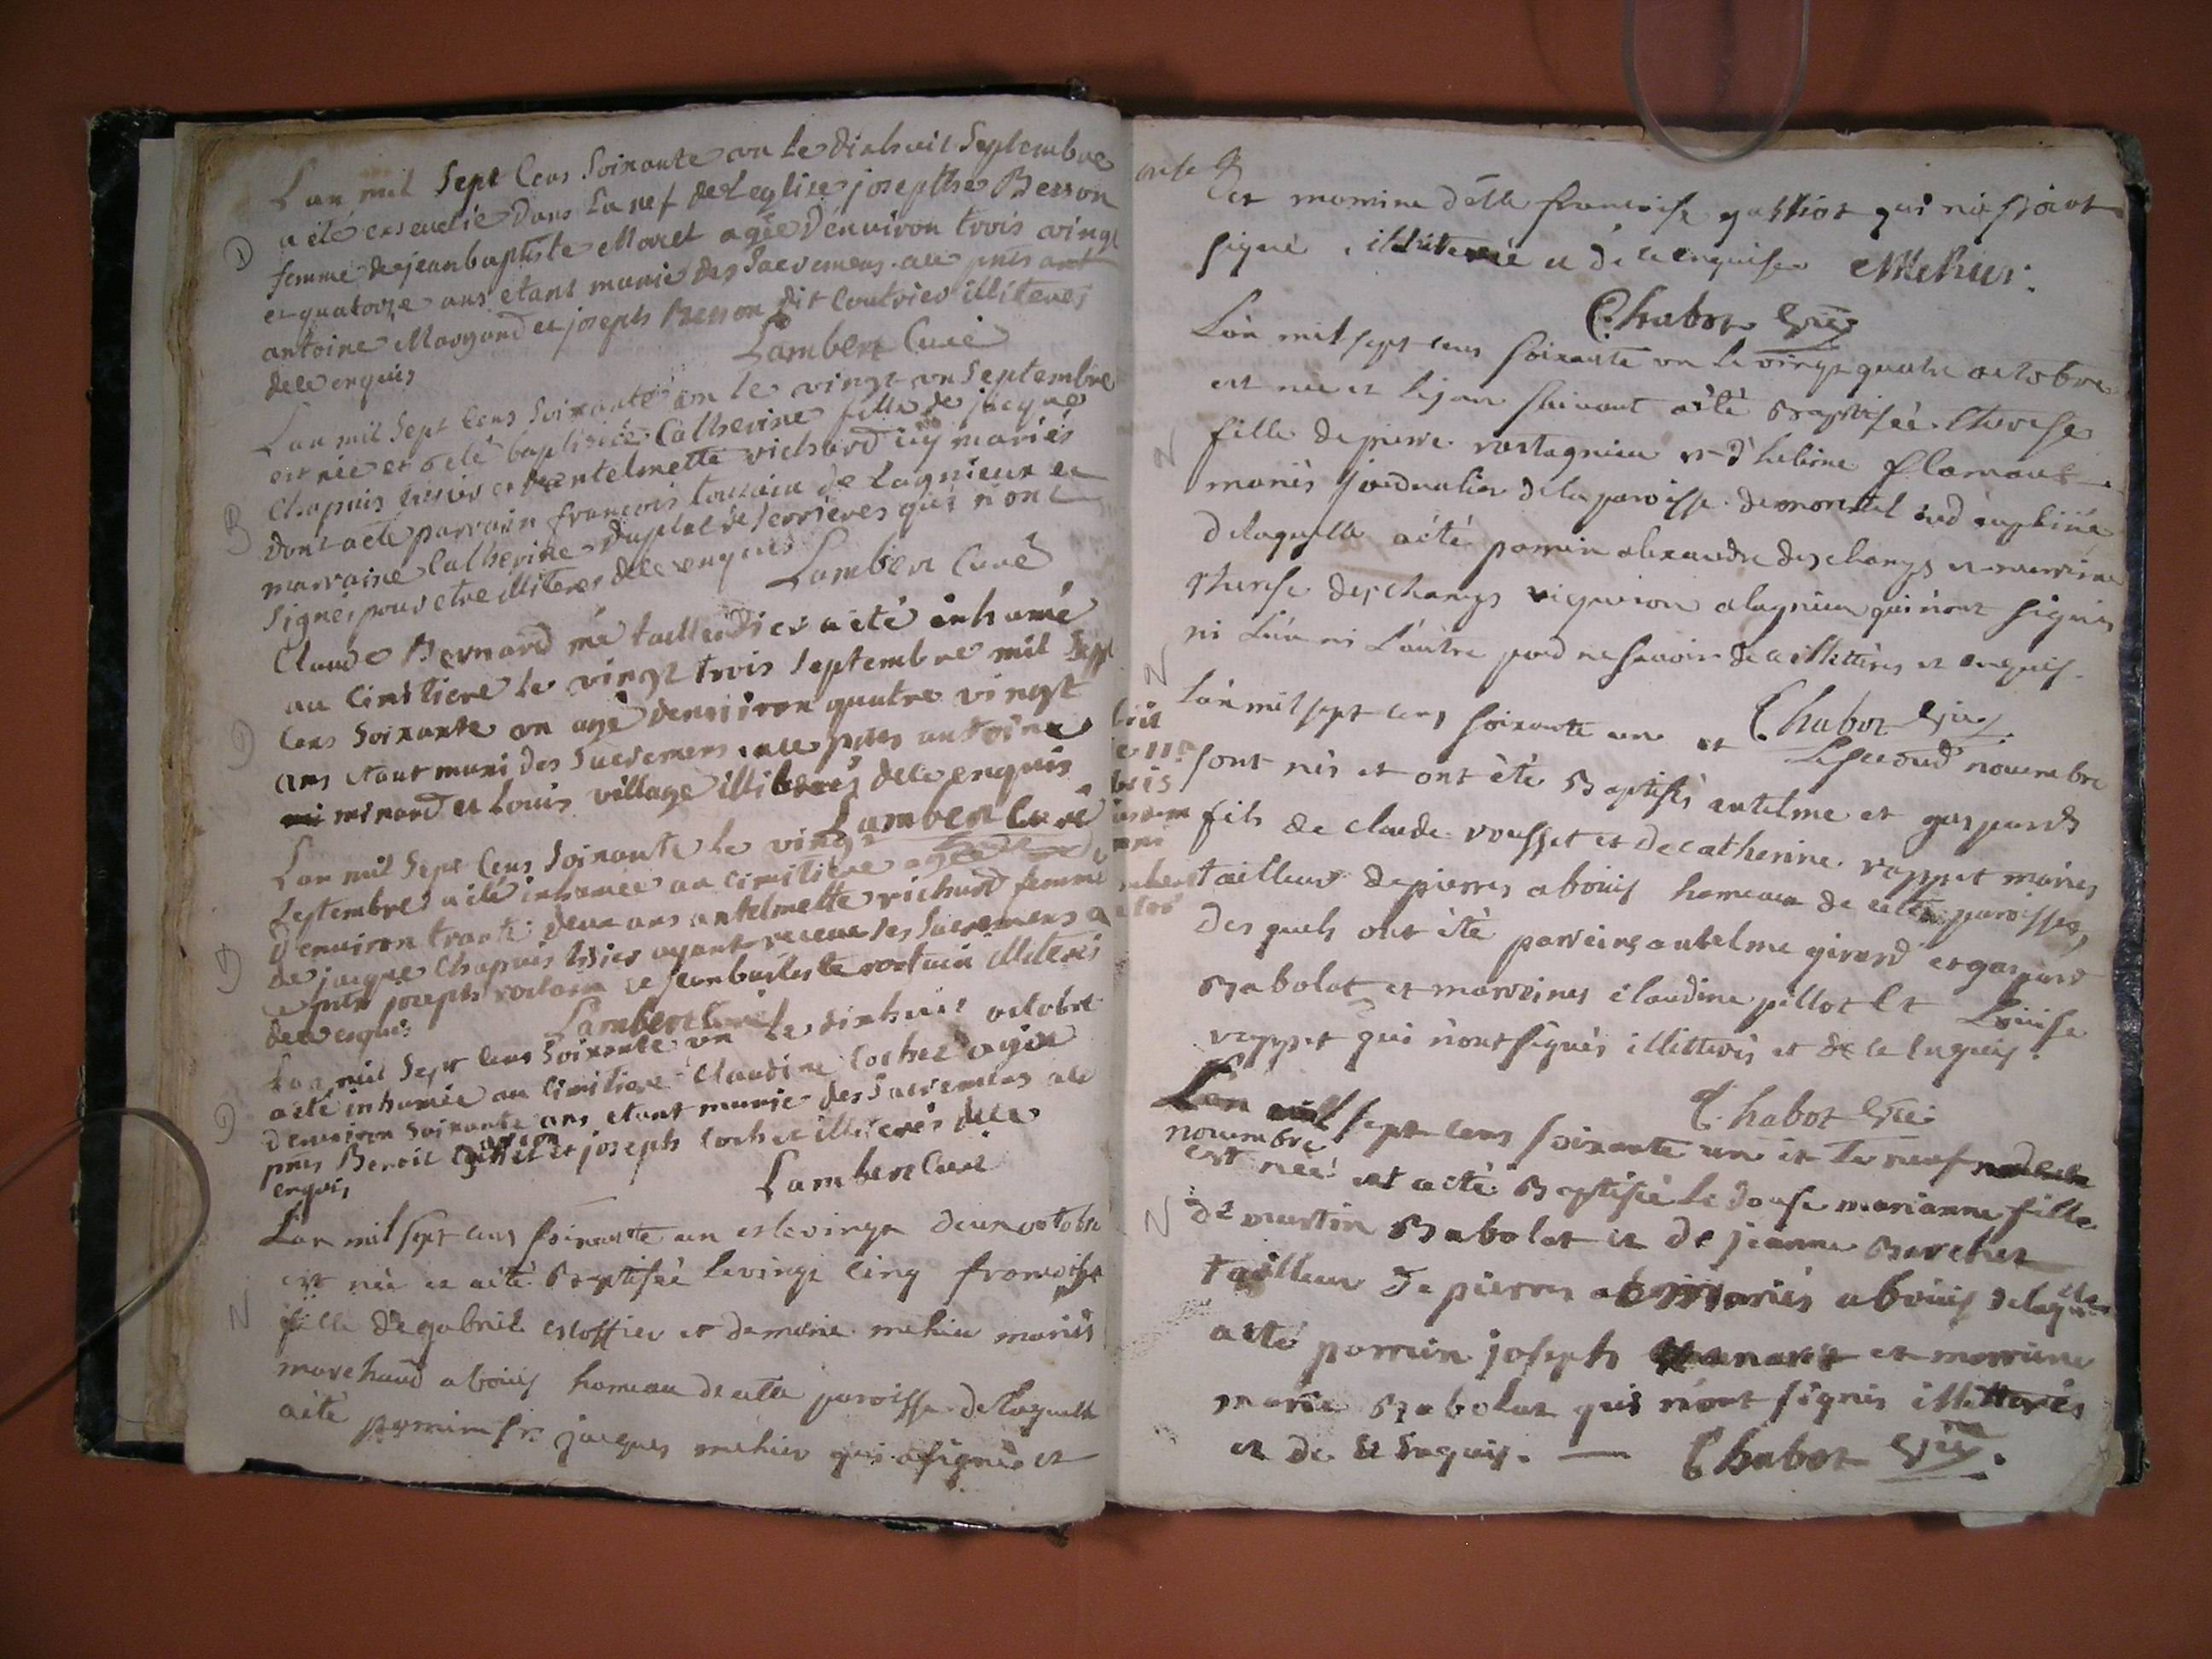 Lan mil Sept Cens Soixante un Le dixhuit Septembre
a été ensevelie Dans La nef de Leglise josepthe Besson
D femme de jeanbaptiste Moret agée Denuiron trois vingt
et quatorze ans etant munie des Sacremens. ace pnts
antoine Margand et joseph Besson dit Coutrier illiterés
dece enquis Lambert Curé
Lan mil Sept Cens Soixante un le vingt un Septembre
est née et a eté baptisée Catherine fille de jacque
Chapuis tisier et dantelmette richard mariés
B Dont a eté parrain francois touzain de Lagnieux et
marraine Catherine Duplat de Serrieres qui nont
Signés pour etre illiteres dece enquis Lambert Curé
Claude Bernard né taillendier a été inhumé
au Cimitiere Le vingt trois Septembre mil Sept
D Cens Soixante un agé denuiron quatre vingt
ans etant muni des Sacremens. ace pnts antoine
minard et Louis village illiterés dece enquis
Lambert Curé
Lan mil Sept Cens Soixante Le vingt
Septembre a été inhumée au Cimitiere agée
D'enuiron trante deux ans antelmette richard femme
D de jacque Chapuis tisier ayant receue ses Sacremens a
ce pnts joseph rostain et Jeanbatiste rostain illiterés
dece enquis Lambert Curé
Lan mil Sept Cens Soixante un Le dixhuit octobre
a eté inhumée au Cimitiere Claudine Cochet agée
D denuiron Soixante ans etant munie des Sacremens ace
pnts Benoit et joseph Cochet illiterés dece
enquis Lambert Curé
Lan mil sept cens soixante un et le vingt deux octobre
est née et a eté Baptisée le vingt cinq francoise
N fille de gabriel estoffier et de marie mehier mariés
marchand a bouis hameau de cette paroisse de laquelle
a eté parrain sr. jacques mehier qui a signé et
et marraine dlle francoise galliot qui nas point
signé, illiterée et de ce enquise Mehier.
Chabot vic.
Lan mil sept cens soixante un le vingt quatre octobre
est née et le jour suivant a été Baptisée therese
N fille de pierre rostagnieu et d'helene flamant
mariés journalier de la paroisse de montel en dauphiné
de laquelle a été parrain alexandre deschamps et marraine
therese deschamps vigneron a lagnieu qui n'ont signés
ni L'un ni L'autre pour ne savoir de ce illettérés et enquis.
Chabot vic.
N Lan mil sept cens soixante un et Le second novembre
sont nés et ont été Baptisés antelme et gaspard
fils de claude rousset et de catherine rappet mariés
tailleur de pierres a bouis hameau de cette paroisse,
Des quels ont été parreins antelme girard et gaspard
Babolat et marreines claudine pillot et Louise
rappet qui n'ont signés illitterés et de ce Enquis.
Chabot vic.
Lan mil sept cens soixante un et Le neuf
novembre
est née et a eté Baptisée le douse marianne fille
N de martin Babolat et de jeanne Berchet
tailleur de pierres mariés a bouis delaquelle
a eté parrein joseph et marreine
marie Babolat qui n'ont signés illitterés
et de ce Enquis. — Chabot vic.